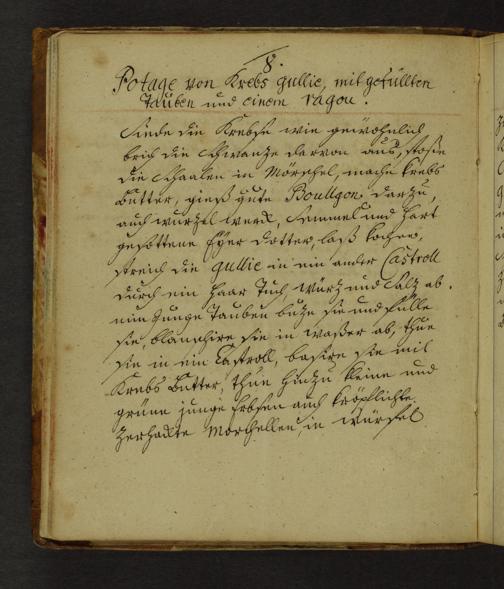 8.
Potage von Krebs gullie, mit gefüllten
Tauben und einem ragou.
Siede die Krebse wie gewöhnlich
brich die schwantze darvon aus, stoße
die schaalen in Mörschel, mache krebs
butter, gieß gute Boullgon darzu,
auch wurzel werck, Semmel und hart
gesottene Eyer dotter, laß kochen,
streich die gullie in ein ander Castroll
durch ein haar Tuch würz und salz ab.
nim Junge Tauben butze sie und fülle
sie, blanschire sie in waßer ab, thue
sie in ein Castroll, basire sie mit
Krebs butter, thue hinzu kleine und
grüne junge Erbsen auch
zerhackte Morchellen, in würfel